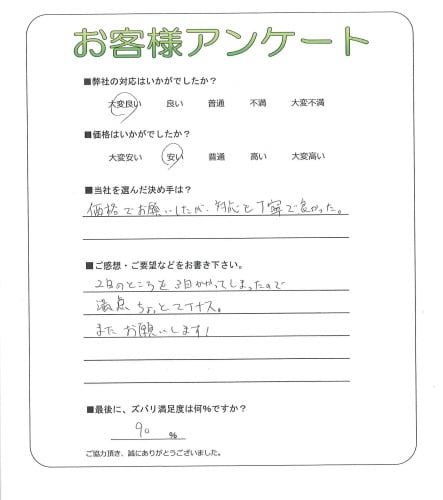 お客様アンケート
■弊社の対応はいかがでしたか？
大変良い 良い 普通 不満 大変不満
■価格はいかがでしたか？
大変安い 安い 普通 高い 大変高い
■当社を選んだ決め手は？
価格でお願いしたが、対応も丁寧で良かった。
■ご感想・ご要望などをお書き下さい。
2日のところを3日かかってしまったので
満点ちょっとマイナス。
またお願いします！
■最後に、ズバリ満足度は何%ですか？
90 %
ご協力頂き、誠にありがとうございました。